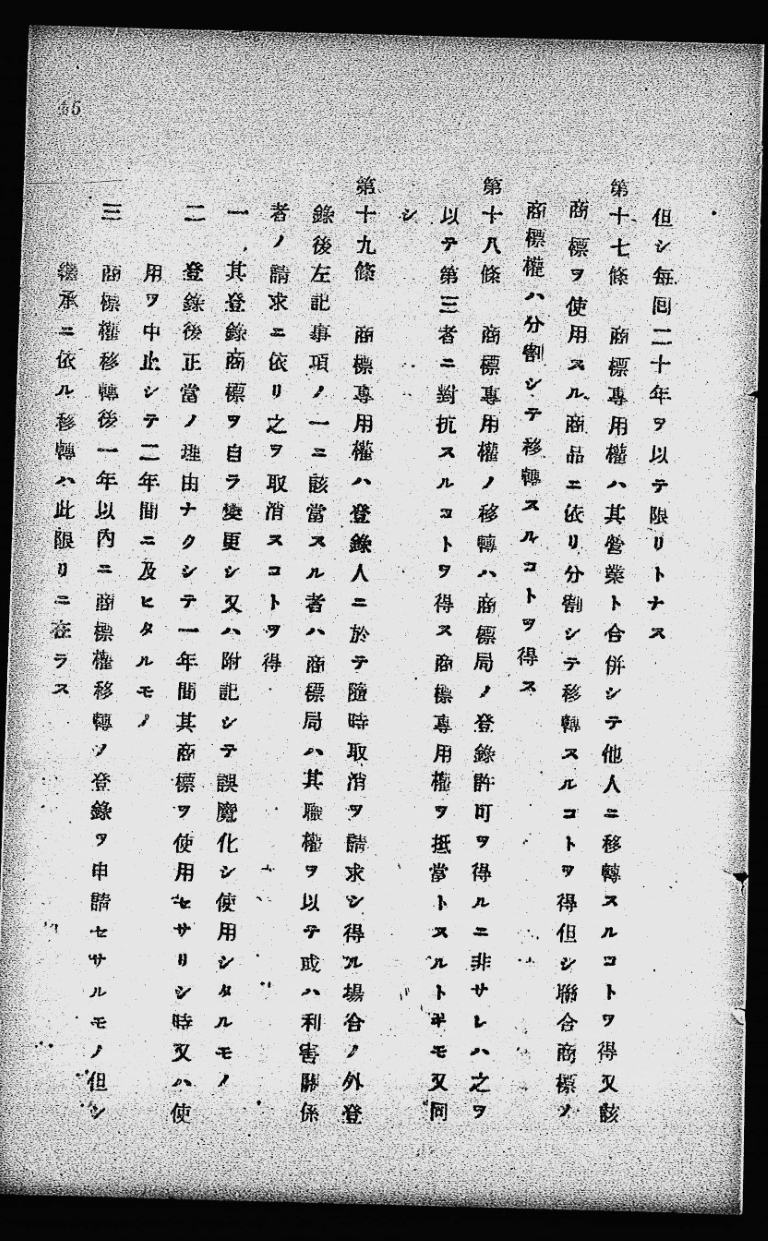 但シ毎回二十年ヲ以テ限リトナス
第十七條　商標專用權ハ其營業ト合併シテ他人ニ移轉スルコトヲ得又該
商標ヲ使用スル商品ニ依リ分割シテ移轉スルコトヲ得但シ聯合商標ノ
商標權ハ分割シテ移轉スルコトヲ得ス
第十八條　商標專用權ノ移轉ハ商標局ノ登錄許可ヲ得ルニ非サレハ之ヲ
以テ第三者ニ對抗スルコトヲ得ス商標專用權ヲ抵當トスルトキモ又同
シ
第十九條　商標專用權ハ登錄人ニ於テ隨時取消ヲ請求シ得ル場合ノ外登
錄後左記事項ノ一ニ該當スル者ハ商標局ハ其職權ヲ以テ或ハ利害關係
者ノ請求ニ依リ之ヲ取消スコトヲ得
一　其登錄商標ヲ自ラ變更シ又ハ附記シテ誤魔化シ使用シタルモノ
二　登錄後正當ノ理由ナクシテ一年間其商標ヲ使用セサリシ時又ハ使
用ヲ中止シテ二年間ニ及ヒタルモノ
三　商標權移轉後一年以內ニ商標權移轉ノ登錄ヲ申請セサルモノ但シ
繼承ニ依ル移轉ハ此限リニ在ラス